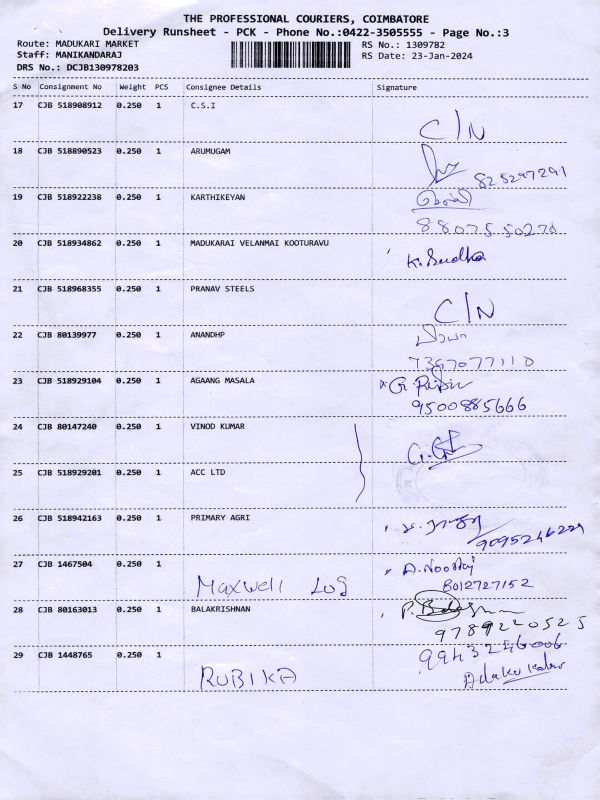 THE PROFESSIONAL COURIERS, COIMBATORE
Delivery Runsheet - PCK - Phone No.:0422-3505555 - Page No.:3
Route: MADUKARI MARKET RS No.: 1309782
Staff: MANIKANDARAJ RS Date: 23-Jan-2024
DRS No.: DCJB130978203
S No Consignment No Weight PCS Consignee Details Signature
17 CJB 518908912 0.250 1 C.S.I C/N
18 CJB 518890523 0.250 1 ARUMUGAM
825297291
19 CJB 518922238 0.250 1 KARTHIKEYAN
8807550270
20 CJB 518934862 0.250 1 MADUKARAI VELANMAI KOOTURAVU K. Sudha
21 CJB 518968355 0.250 1 PRANAV STEELS C/N
22 CJB 80139977 0.250 1 ANANDHP
7367077110
23 CJB 518929104 0.250 1 AGAANG MASALA
9500885666
24 CJB 80147240 0.250 1 VINOD KUMAR
25 CJB 518929201 0.250 1 ACC LTD
26 CJB 518942163 0.250 1 PRIMARY AGRI
27 CJB 1467504 0.250 1 Maxwell Log
8012727152
28 CJB 80163013 0.250 1 BALAKRISHNAN
9789220525
29 CJB 1448765 0.250 1 RUBIKA
9943256006